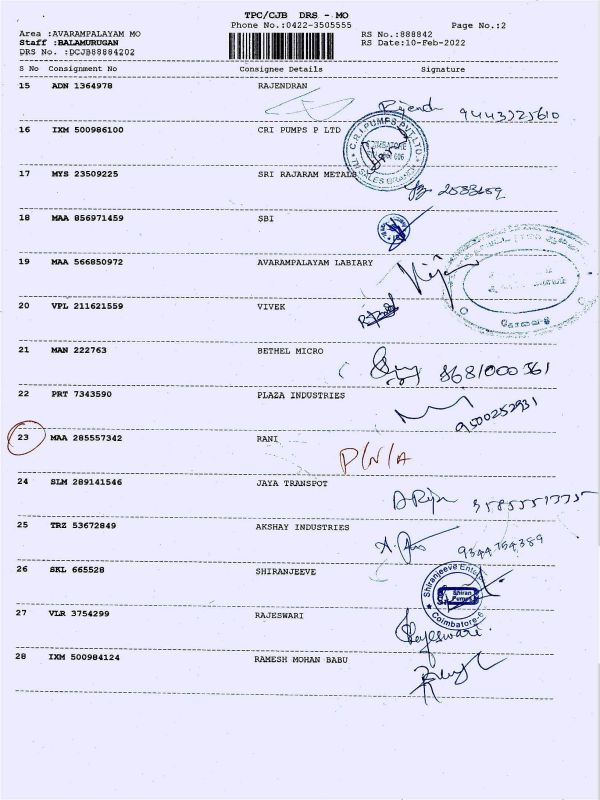 TPC/CJB DRS - MO
Phone No.:0422-3505555
Page No.:2
Area :AVARAMPALAYAM MO
RS No.:888842
Staff :BALAMURUGAN
RS Date:10-Feb-2022
DRS No. :DCJB88884202
S No Consignment No Consignee Details Signature
15 ADN 1364978 RAJENDRAN
Rajendr 9443725610
16 IXM 500986100 CRI PUMPS P LTD
C.R.I PUMPS PVT.LTD
COIMBATORE
TN SALES BRANCH
17 MYS 23509225 SRI RAJARAM METALS
2583689
18 MAA 856971459 SBI
19 MAA 566850972 AVARAMPALAYAM LABIARY
கோவை-6
20 VPL 211621559 VIVEK
21 MAN 222763 BETHEL MICRO
8681000361
22 PRT 7343590 PLAZA INDUSTRIES
9500252931
23 MAA 285557342 RANI
P/N/A
24 SLM 289141546 JAYA TRANSPOT
25 TRZ 53672849 AKSHAY INDUSTRIES
9344754389
26 SKL 665528 SHIRANJEEVE
Shiranjeeve
Shiran
Pumps
Coimbatore-6
27 VLR 3754299 RAJESWARI
Rajeswari.
28 IXM 500984124 RAMESH MOHAN BABU